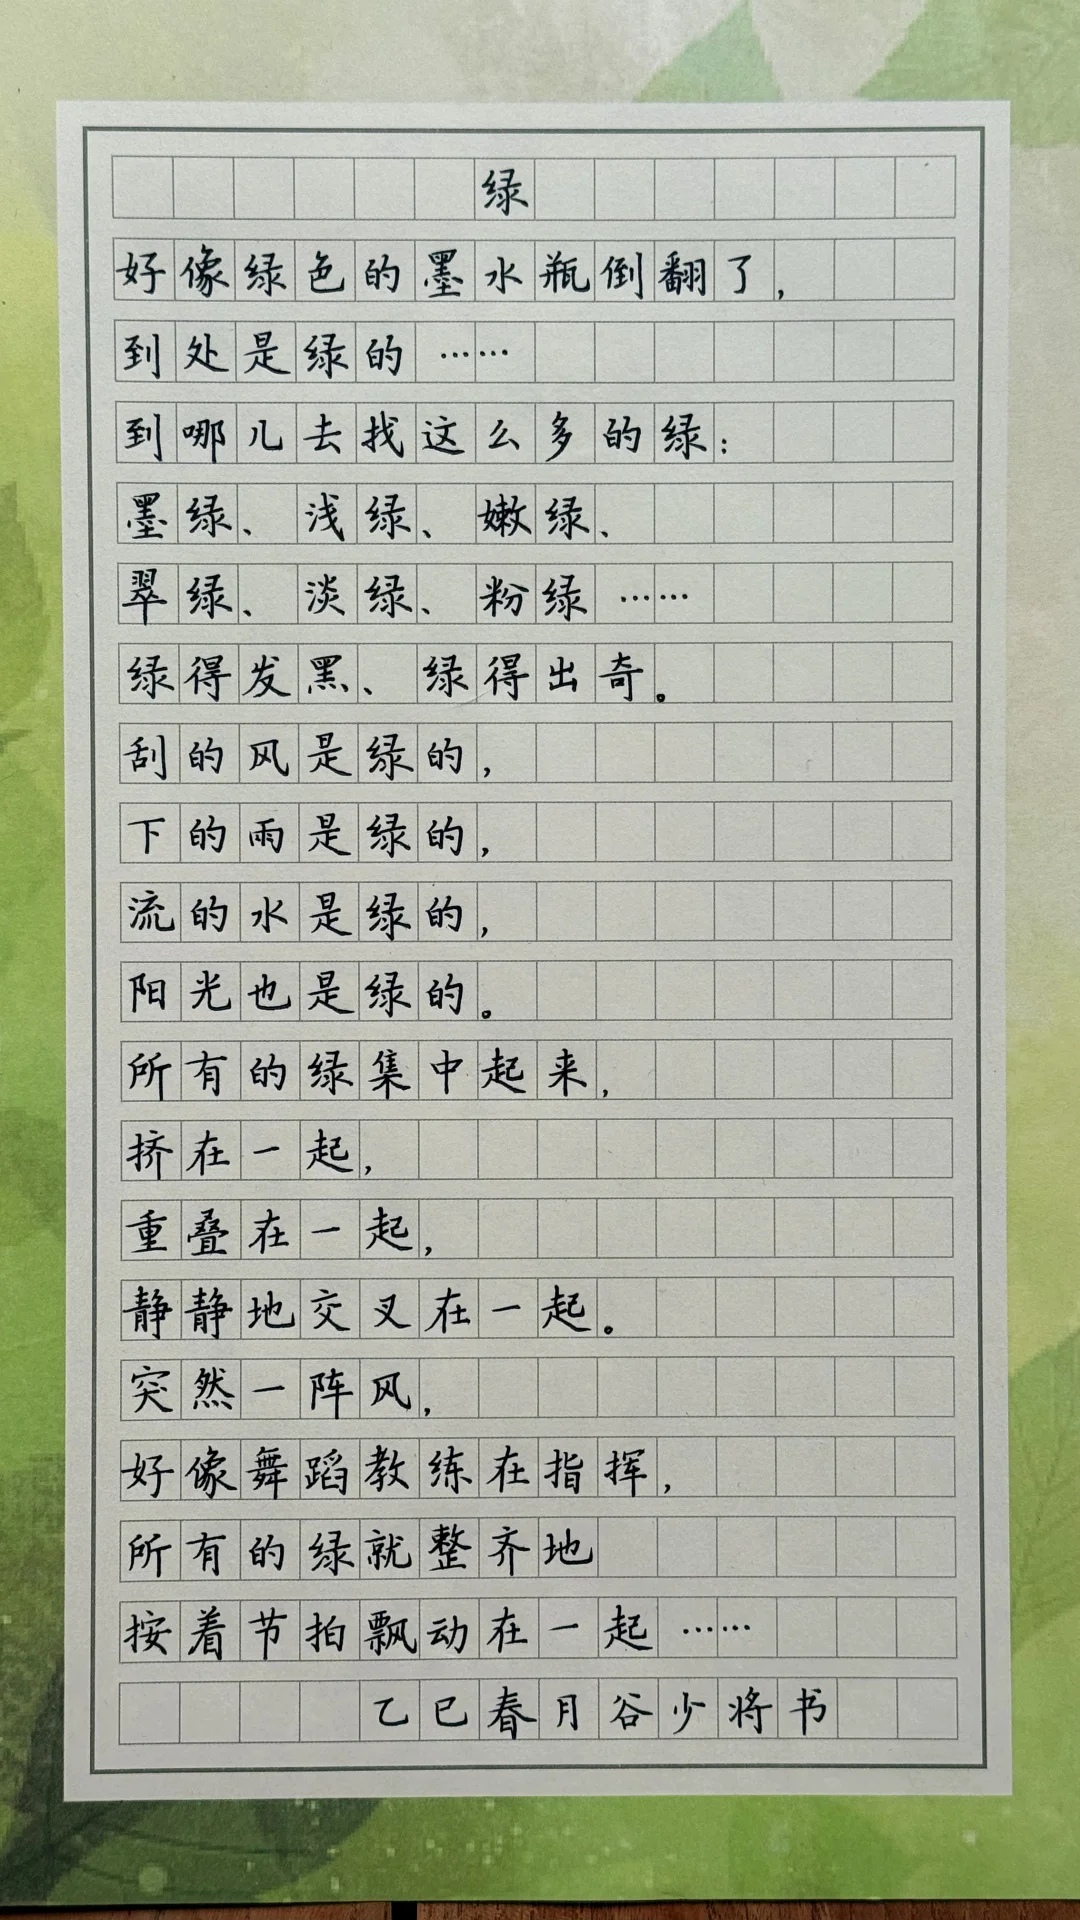 绿
好像绿色的墨水瓶倒翻了,
到处是绿的……
到哪儿去找这么多的绿:
墨绿、浅绿、嫩绿、
翠绿、淡绿、粉绿……
绿得发黑、绿得出奇。
刮的风是绿的,
下的雨是绿的,
流的水是绿的,
阳光也是绿的。
所有的绿集中起来,
挤在一起,
重叠在一起,
静静地交叉在一起。
突然一阵风,
好像舞蹈教练在指挥,
所有的绿就整齐地
按着节拍飘动在一起……
乙巳春月谷少将书